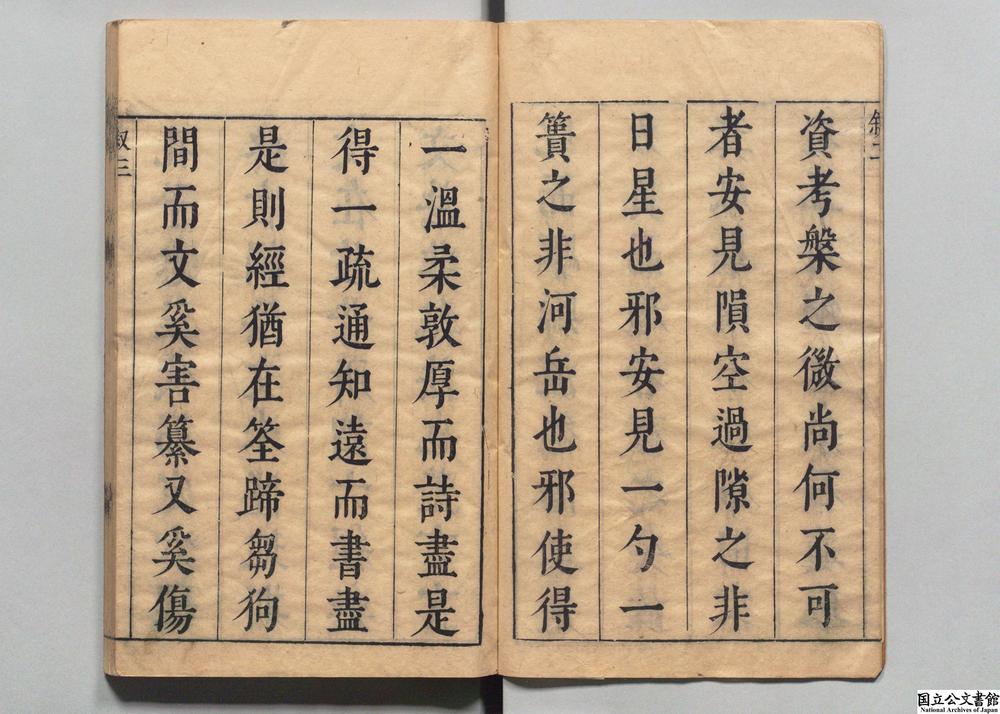 敘二
資考槃之微尚何不可
者安見隕空過隙之非
日星也邪安見一勺一
簣之非河岳也邪使得
一溫柔敦厚而詩盡是
得一疏通知遠而書盡
是則經猶在筌蹄芻狗
間而文奚害纂又奚傷
叙三
国立公文書館
National Archives of Japan